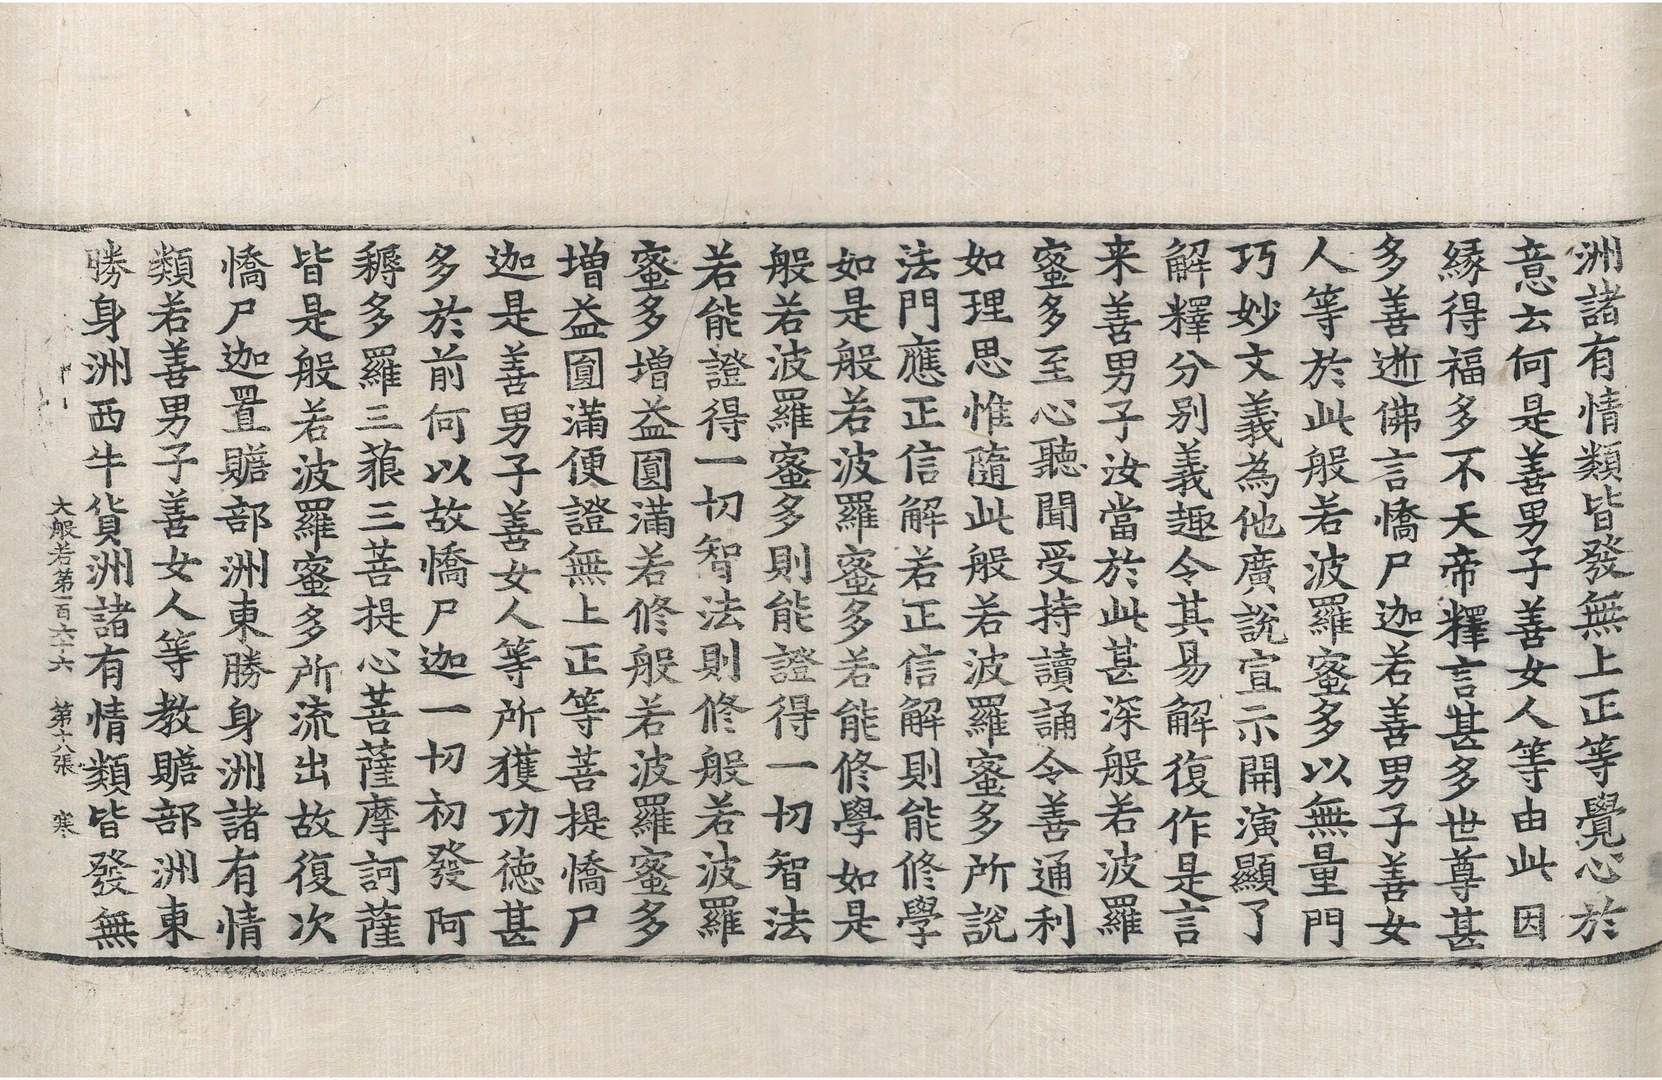 洲諸有情類皆發無上正等覺心於
意云何是善男子善女人等由此因
緣得福多不天帝釋言甚多世尊甚
多善逝佛言憍尸迦若善男子善女
人等於此般若波羅蜜多以無量門
巧妙文義為他廣說宣示開演顯了
解釋分別義趣令其易解復作是言
来善男子汝當於此甚深般若波羅
蜜多至心聽聞受持讀誦令善通利
如理思惟隨此般若波羅蜜多所說
法門應正信解若正信解則能修學
如是般若波羅蜜多若能修學如是
般若波羅蜜多則能證得一切智法
若能證得一切智法則修般若波羅
蜜多增益圓滿若修般若波羅蜜多
增益圓滿便證無上正等菩提憍尸
迦是善男子善女人等所獲功德甚
多於前何以故憍尸迦一切初發阿
耨多羅三藐三菩提心菩薩摩訶薩
皆是般若波羅蜜多所流出故復次
憍尸迦置贍部洲東勝身洲諸有情
類若善男子善女人等教贍部洲東
勝身洲西牛貨洲諸有情類皆發無
大般若第一百六十六 第十八張 寒